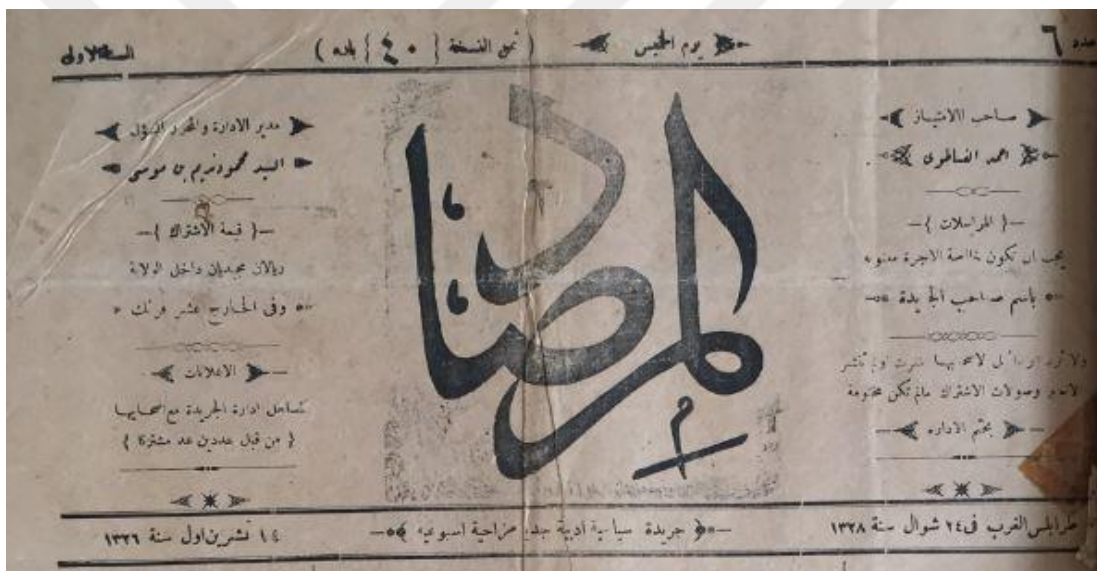 عدد ٦
يوم الخميس
( ثمن النسخة { ٤٠ } باده )
السنة الاولى
صاحب الامتياز
احمد الفساطوى
{ المراسلات }
يجب ان تكون خالصة الاجرة معنونه
باسم صاحب الجريدة
لاصحابها نشرت او لم تنشر
وصولات الاشتراك مالم تكن مختومة
بختم الاداره
المرصاد
مدير الادارة والمحرر المسؤل
السيد محمود نديم بن موسى
{ قيمة الاشتراك }
ريالان مجيديان داخل الولاية
وفى الخارج عشر فرنك
الاعلانات
تتساهل ادارة الجريدة مع اصحابها
{ من قبل عددين عد مشتركا }
طرابلس الغرب فى ٢٤ شوال سنة ١٣٢٨
جريدة سياسية ادبية جدية مزاحية اسبوعيه
١٤ تشرين اول سنة ١٣٢٦